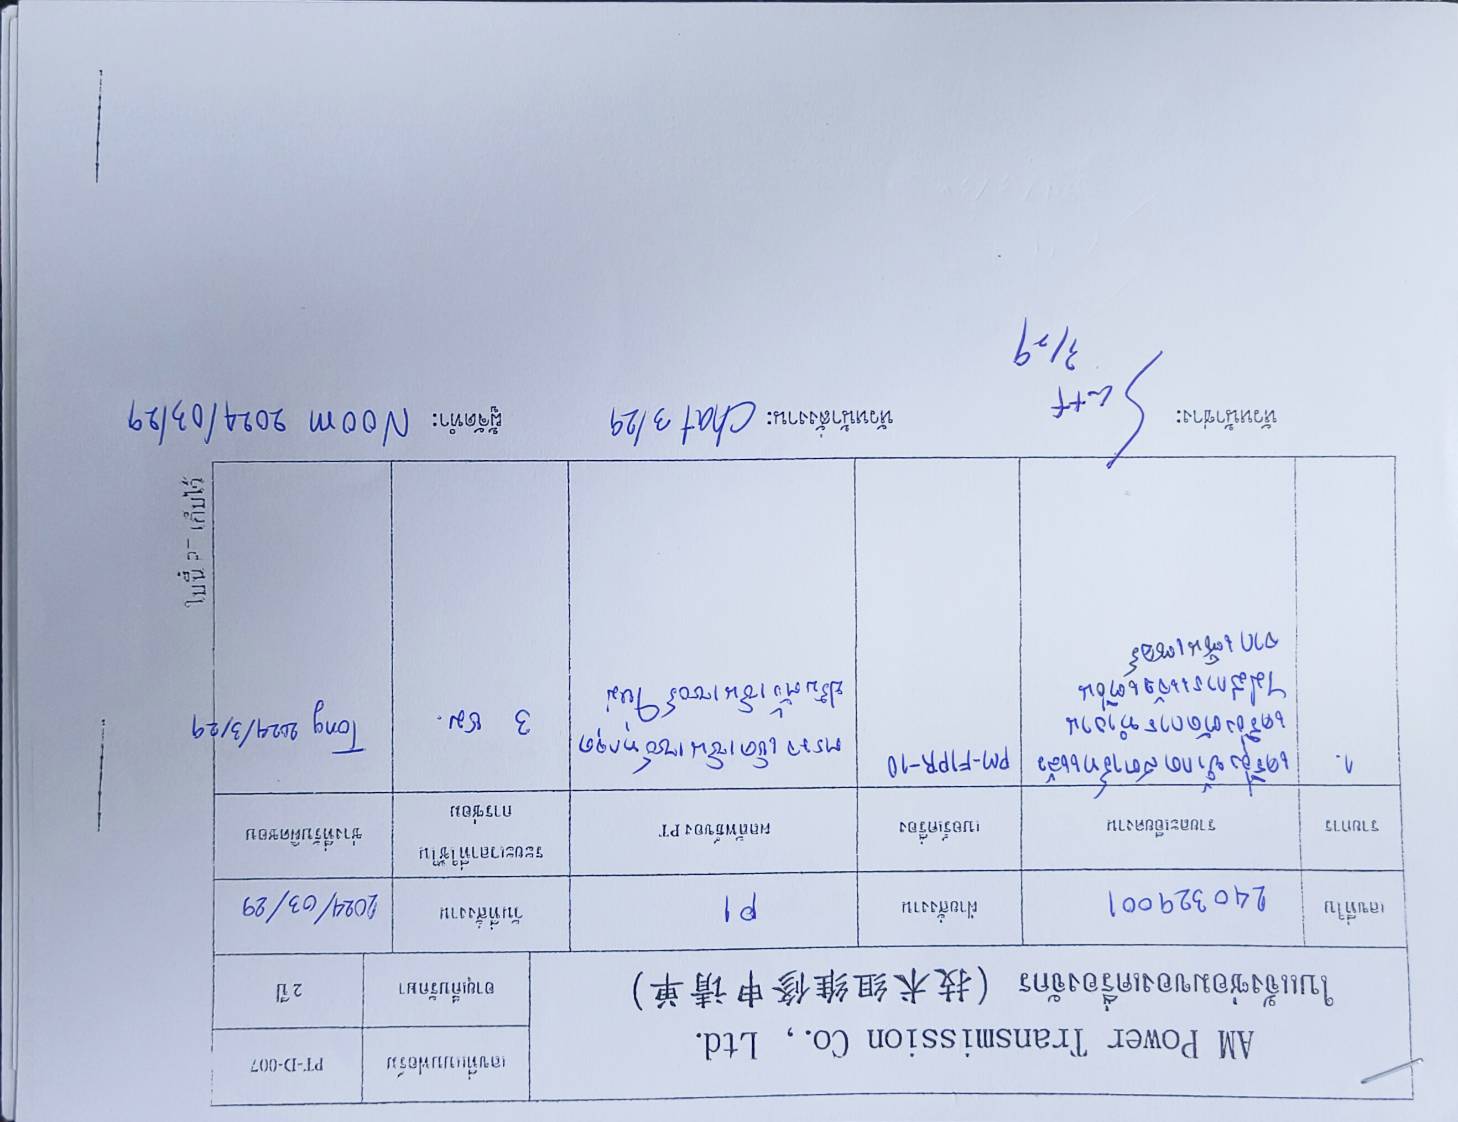 AM Power Transmission Co., Ltd.
ใบแจ้งซ่อมของเครื่องจักร (技术组维修申请单)
เลขที่แบบฟอร์ม PT-D-007
อายุเก็บรักษา 2 ปี
เลขที่ใบ 240329001 ฝ่ายสั่งงาน P1 วันที่สั่งงาน 2024/03/29
รายการ รายละเอียดงาน เบอร์เครื่อง ผลลัพธ์ของ PT ระยะเวลาที่ใช้ใน
การซ่อม
ช่างที่รับผิดชอบ
1.
เครื่องย้ำกดสตาร์ทแล้ว
เครื่องตัดการทำงาน
ไม่มีการแจ้งเตือน
จากเซ็นเซอร์
PM-F1PR-10
ตรวจเช็คเซ็นเซอร์ทุกจุด
ปรับตั้งเซ็นเซอร์ใหม่
3 ชม.
Tong 2024/3/29
ใบนี้ PT เก็บไว้
หัวหน้าช่าง:
3/29
หัวหน้าสั่งงาน: Chat 3/29
ผู้จัดทำ: Noom 2024/03/29